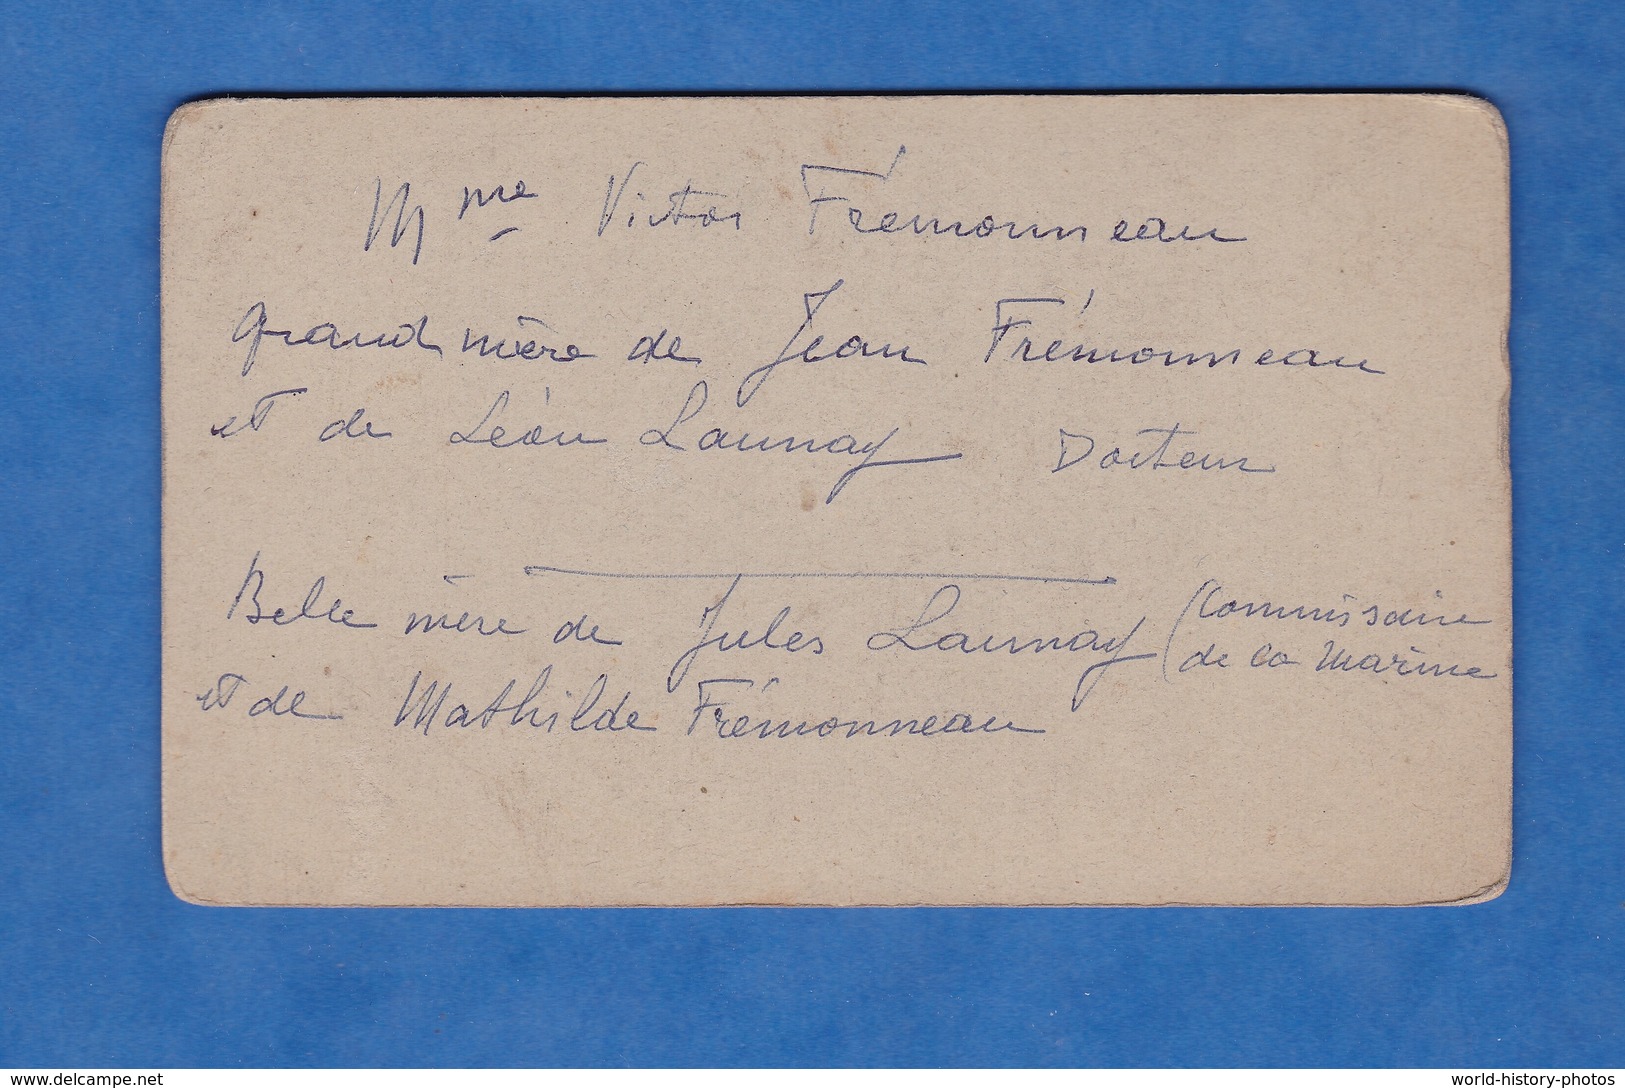 Mme Victor Frémonneau
grand mère de Jean Frémonneau
et de Léon Launay Docteur
Belle mère de Jules Launay (Commissaire
de la Marine
et de Mathilde Frémonneau
www.delcampe.net
world-history-photos